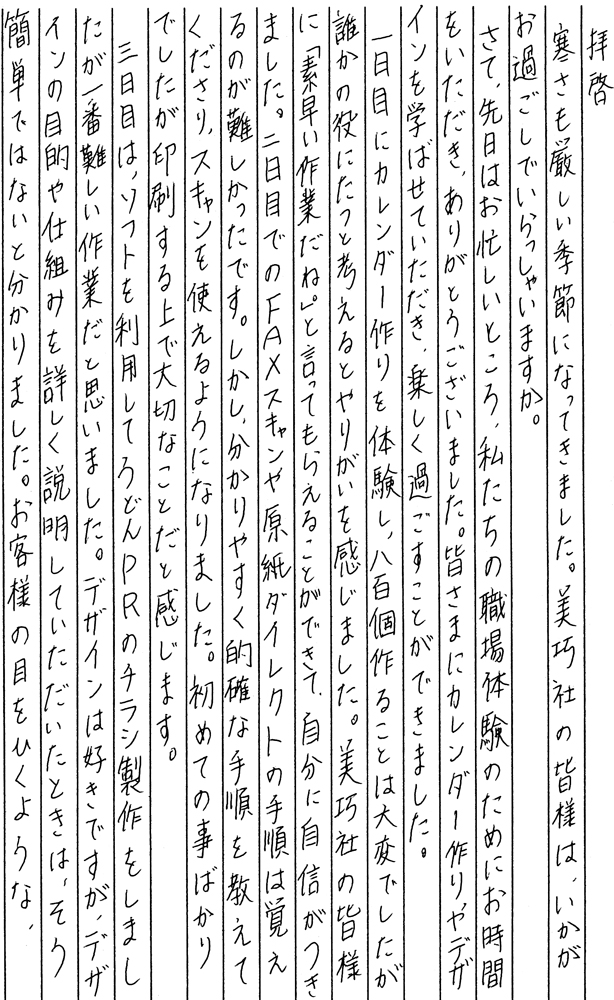 拝啓
寒さも厳しい季節になってきました。美巧社の皆様は、いかが
お過ごしでいらっしゃいますか。
さて、先日はお忙しいところ、私たちの職場体験のためにお時間
をいただき、ありがとうございました。皆さまにカレンダー作り、やデザ
インを学ばせていただき、楽しく過ごすことができました。
一日目にカレンダー作りを体験し、八百個作ることは大変でしたが
誰かの役にたつと考えるとやりがいを感じました。美巧社の皆様
に「素早い作業だね」と言ってもらえることができて、自分に自信がつき
ました。二日目でのFAXスキャンや原紙ダイレクトの手順は覚え
るのが難しかったです。しかし、分かりやすく的確な手順を教えて
くださり、スキャンを使えるようになりました。初めての事ばかり
でしたが印刷する上で大切なことだと感じます。
三日目は、ソフトを利用してうどんPRのチラシ製作をしまし
たが一番難しい作業だと思いました。デザインは好きですが、デザ
インの目的や仕組みを詳しく説明していただいたときは、そう
簡単ではないと分かりました。お客様の目をひくような、